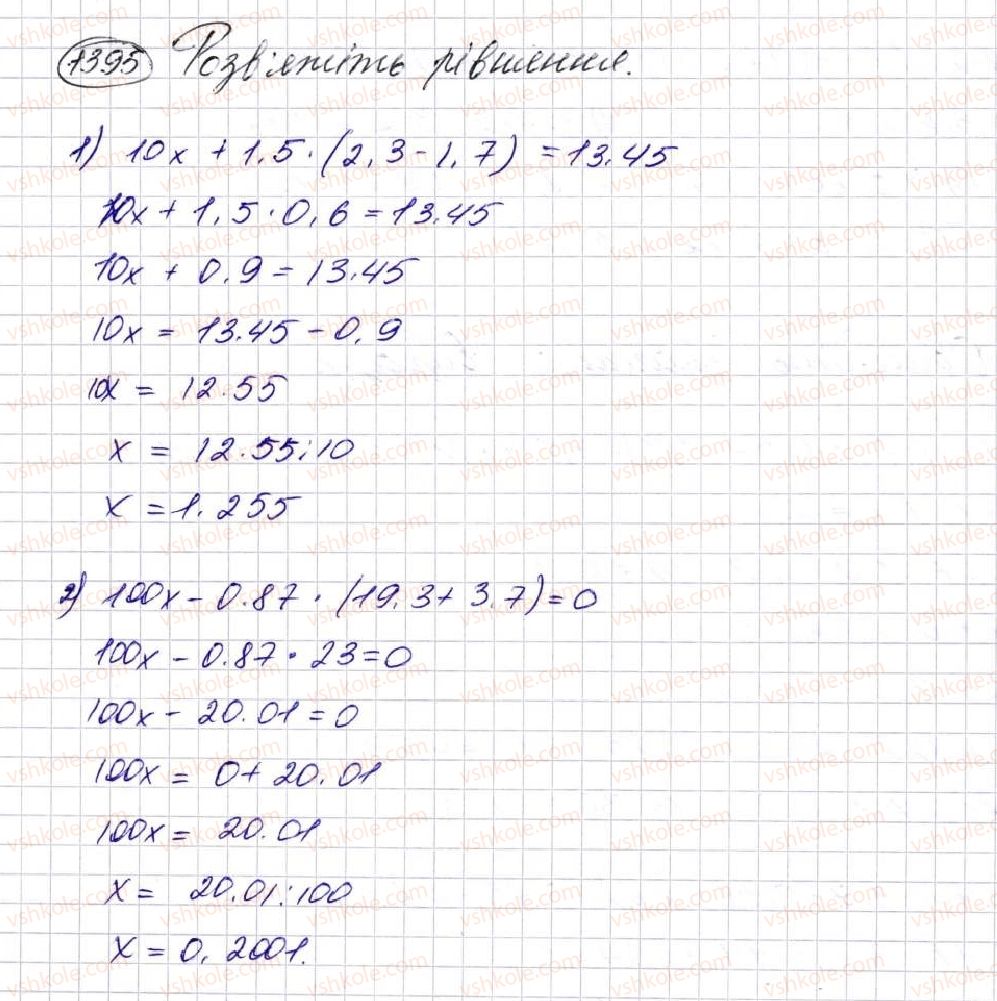 1395 Розв'яжіть рівняння.
1) 10x + 1,5 · (2,3 - 1,7) = 13,45
10x + 1,5 · 0,6 = 13,45
10x + 0,9 = 13,45
10x = 13,45 - 0,9
10x = 12,55
x = 12,55 : 10
x = 1,255
2) 100x - 0,87 · (19,3 + 3,7) = 0
100x - 0,87 · 23 = 0
100x - 20,01 = 0
100x = 0 + 20,01
100x = 20,01
x = 20,01 : 100
x = 0,2001.